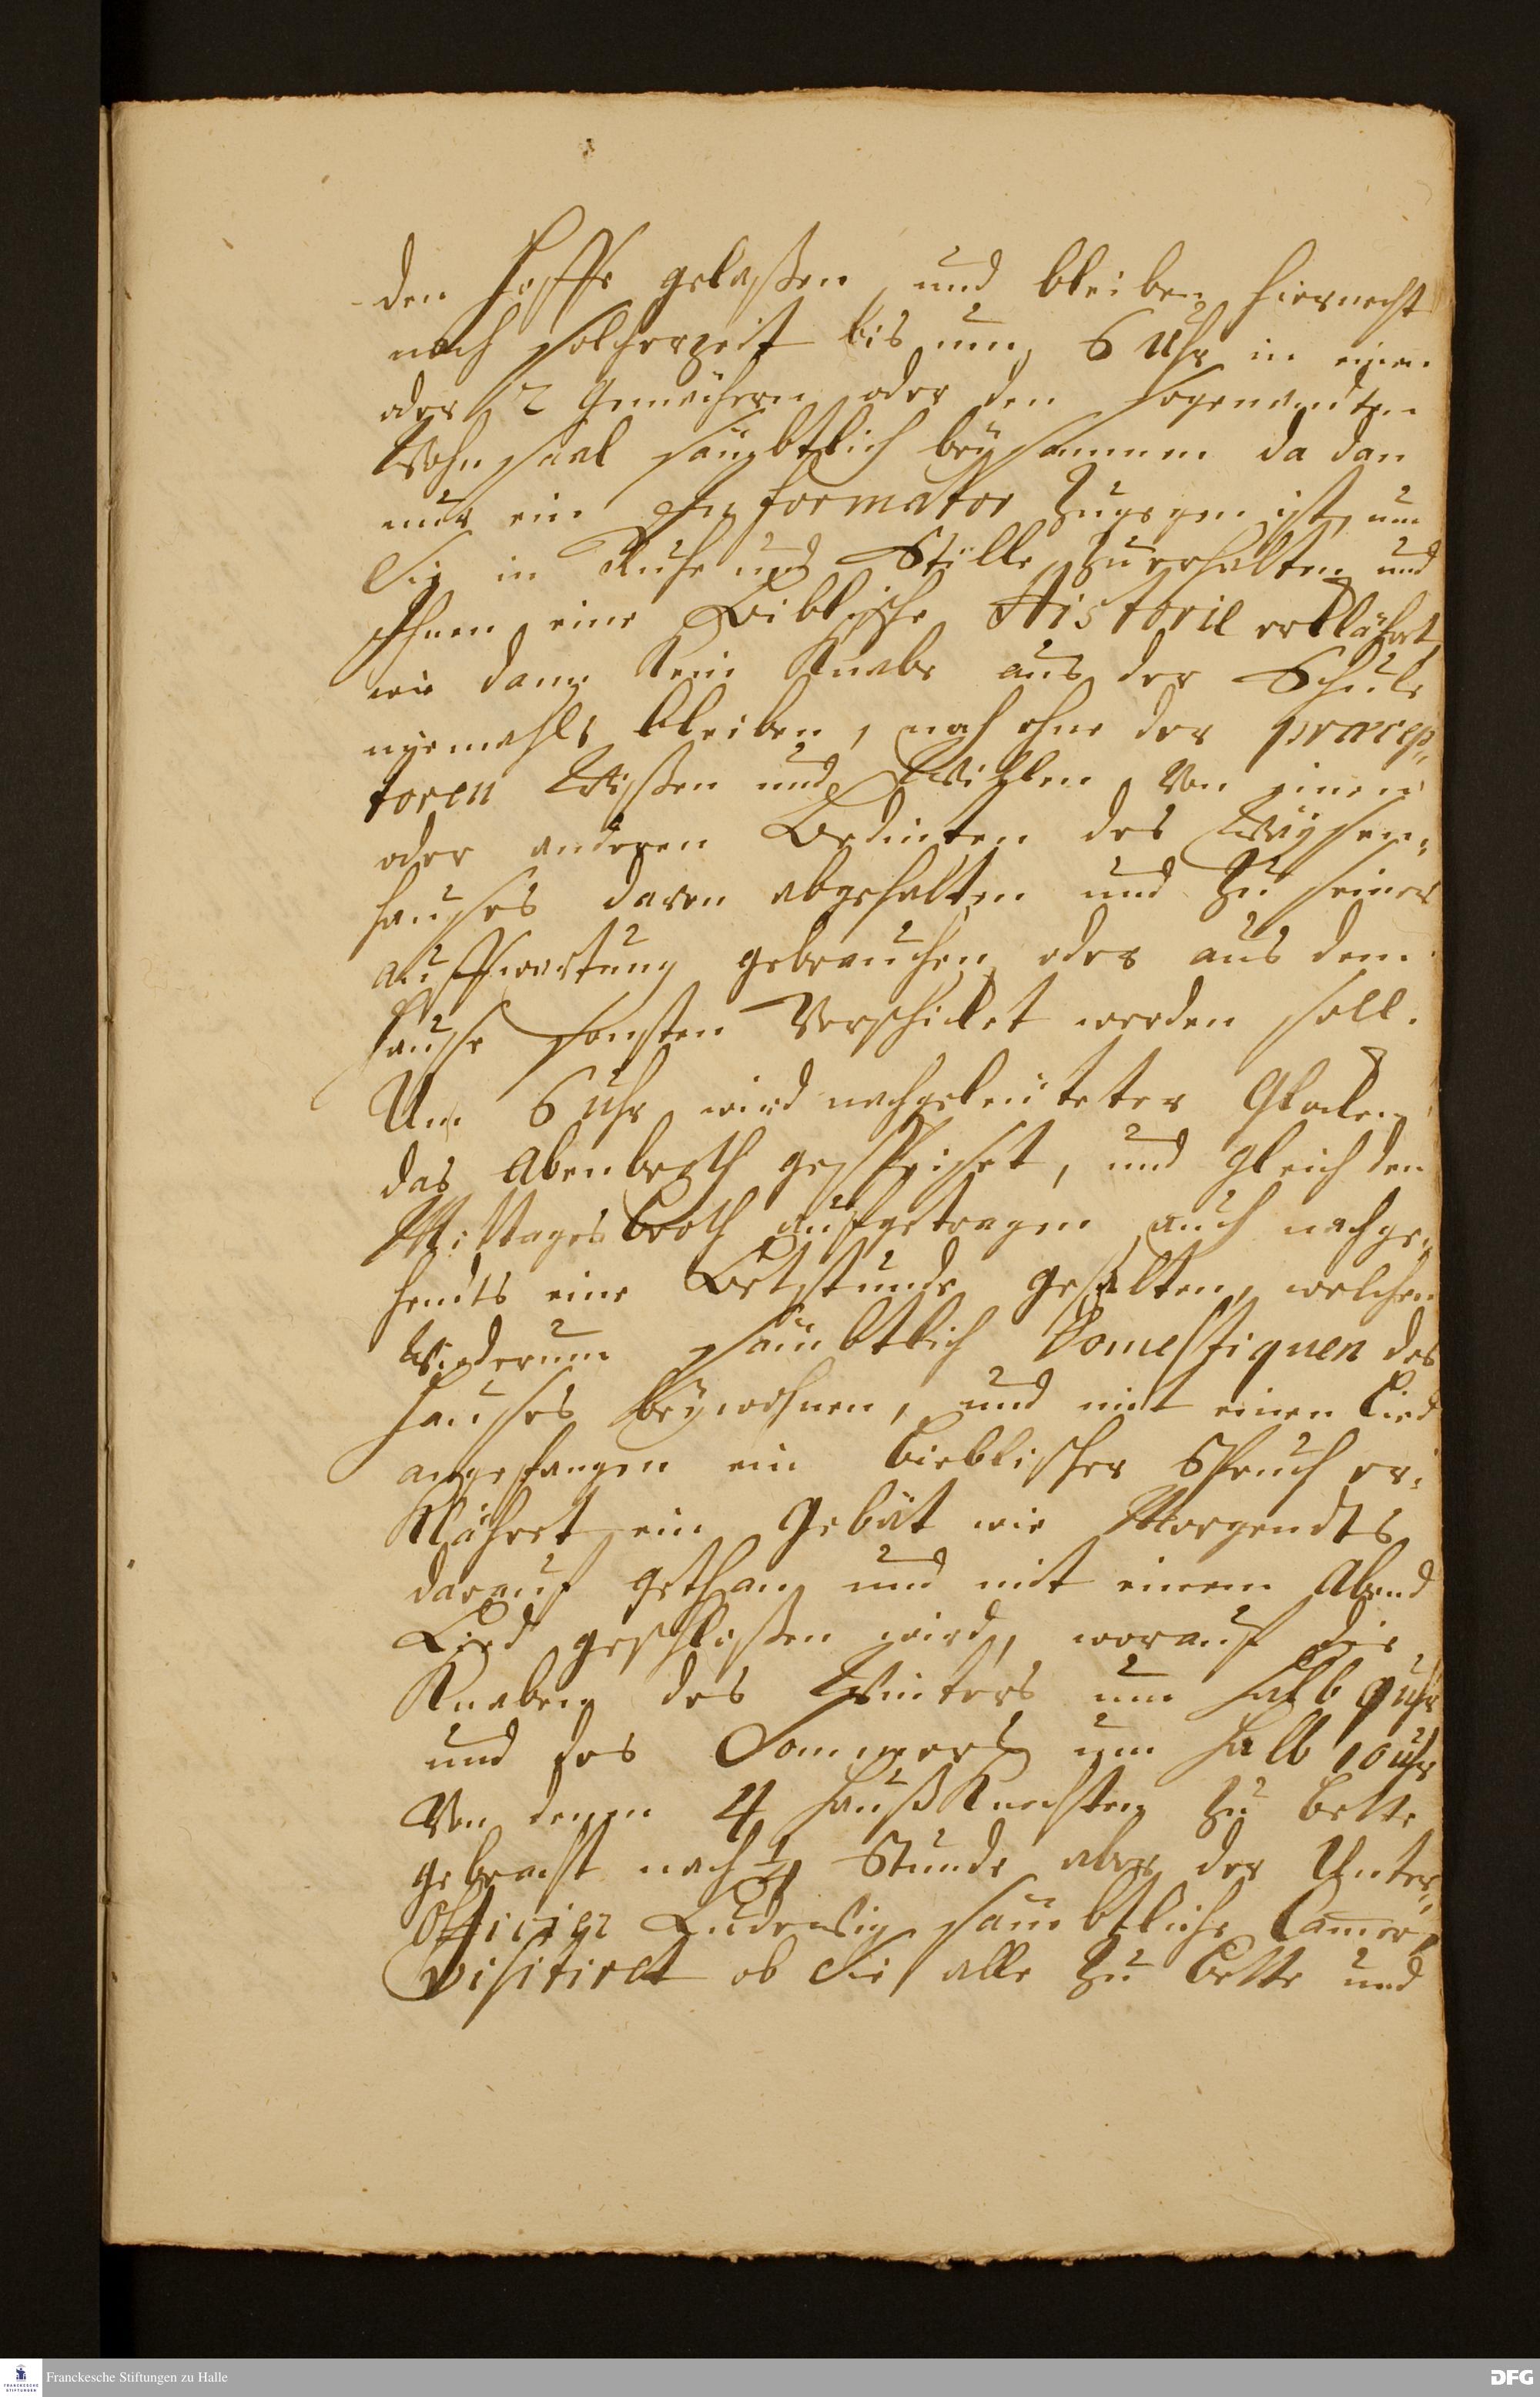 den Hoffe gelaßen, und bleiben hiernechst
nach solcherzeit bis um 6 Uhr in einen
oder 2 Gemächern oder den sogenandten
Wohnsaal sämbtlich beysammen da dan
nur ein Informator zugegen ist, um
Sie in Ruhe und Stille zuerhalten und
Ihnen eine Biblische Historie erklährt,
wie dann kein Knabe aus der Schule
niemahls bleiben, noch ohne der præcep„
toren Wißen und Willen von einen
oder anderen Bedinten des Waysen„
hauses davon abgehalten und zu seiner
auffwartung gebrauchen oder aus dem
Hause sonsten Verschicket werden soll.
Um 6 Uhr wird nachgeleuteter Glocken
das Abenbroth gespeiset, und gleich den
Mittagesbroth aufgetragen auch nachge„
hendts eine Betstunde gehalten, welchen
Wiederum sämbtlich Domestiquen des
Hauses beywohnen, und mit einen Lied
angefangen ein Bieblischer Spruch er„
klähret ein Gebät wie Morgendts
darauf gethan und mit einem Abend
Lied geschloßen wird, worauf die
Knaben des Winters um halb 9 uhr
und des Sommers um halb 10 uhr
Von denen 4 HaußKnechten zu Bette
gebracht nach ½ Stunde aber der Unter„
Officier Ludewig sämbtliche Camer„
visitiret ob Sie alle zu Bette und
Franckesche Stiftungen zu Halle
FRANCKESCHE STIFTUNGEN
DFG